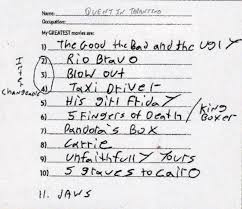 Name: QUENTIN TARANTINO
Occupation:
My GREATEST movies are:
1) The Good the Bad and the Ugly
2) Rio Bravo
3) Blow out
4) Taxi Driver
Interchangeable
5) His girl Friday
6) 5 Fingers of Death / King Boxer
7) Pandora's Box
8) Carrie
9) Unfaithfully Yours
10) 5 graves to Cairo
11. JAWS